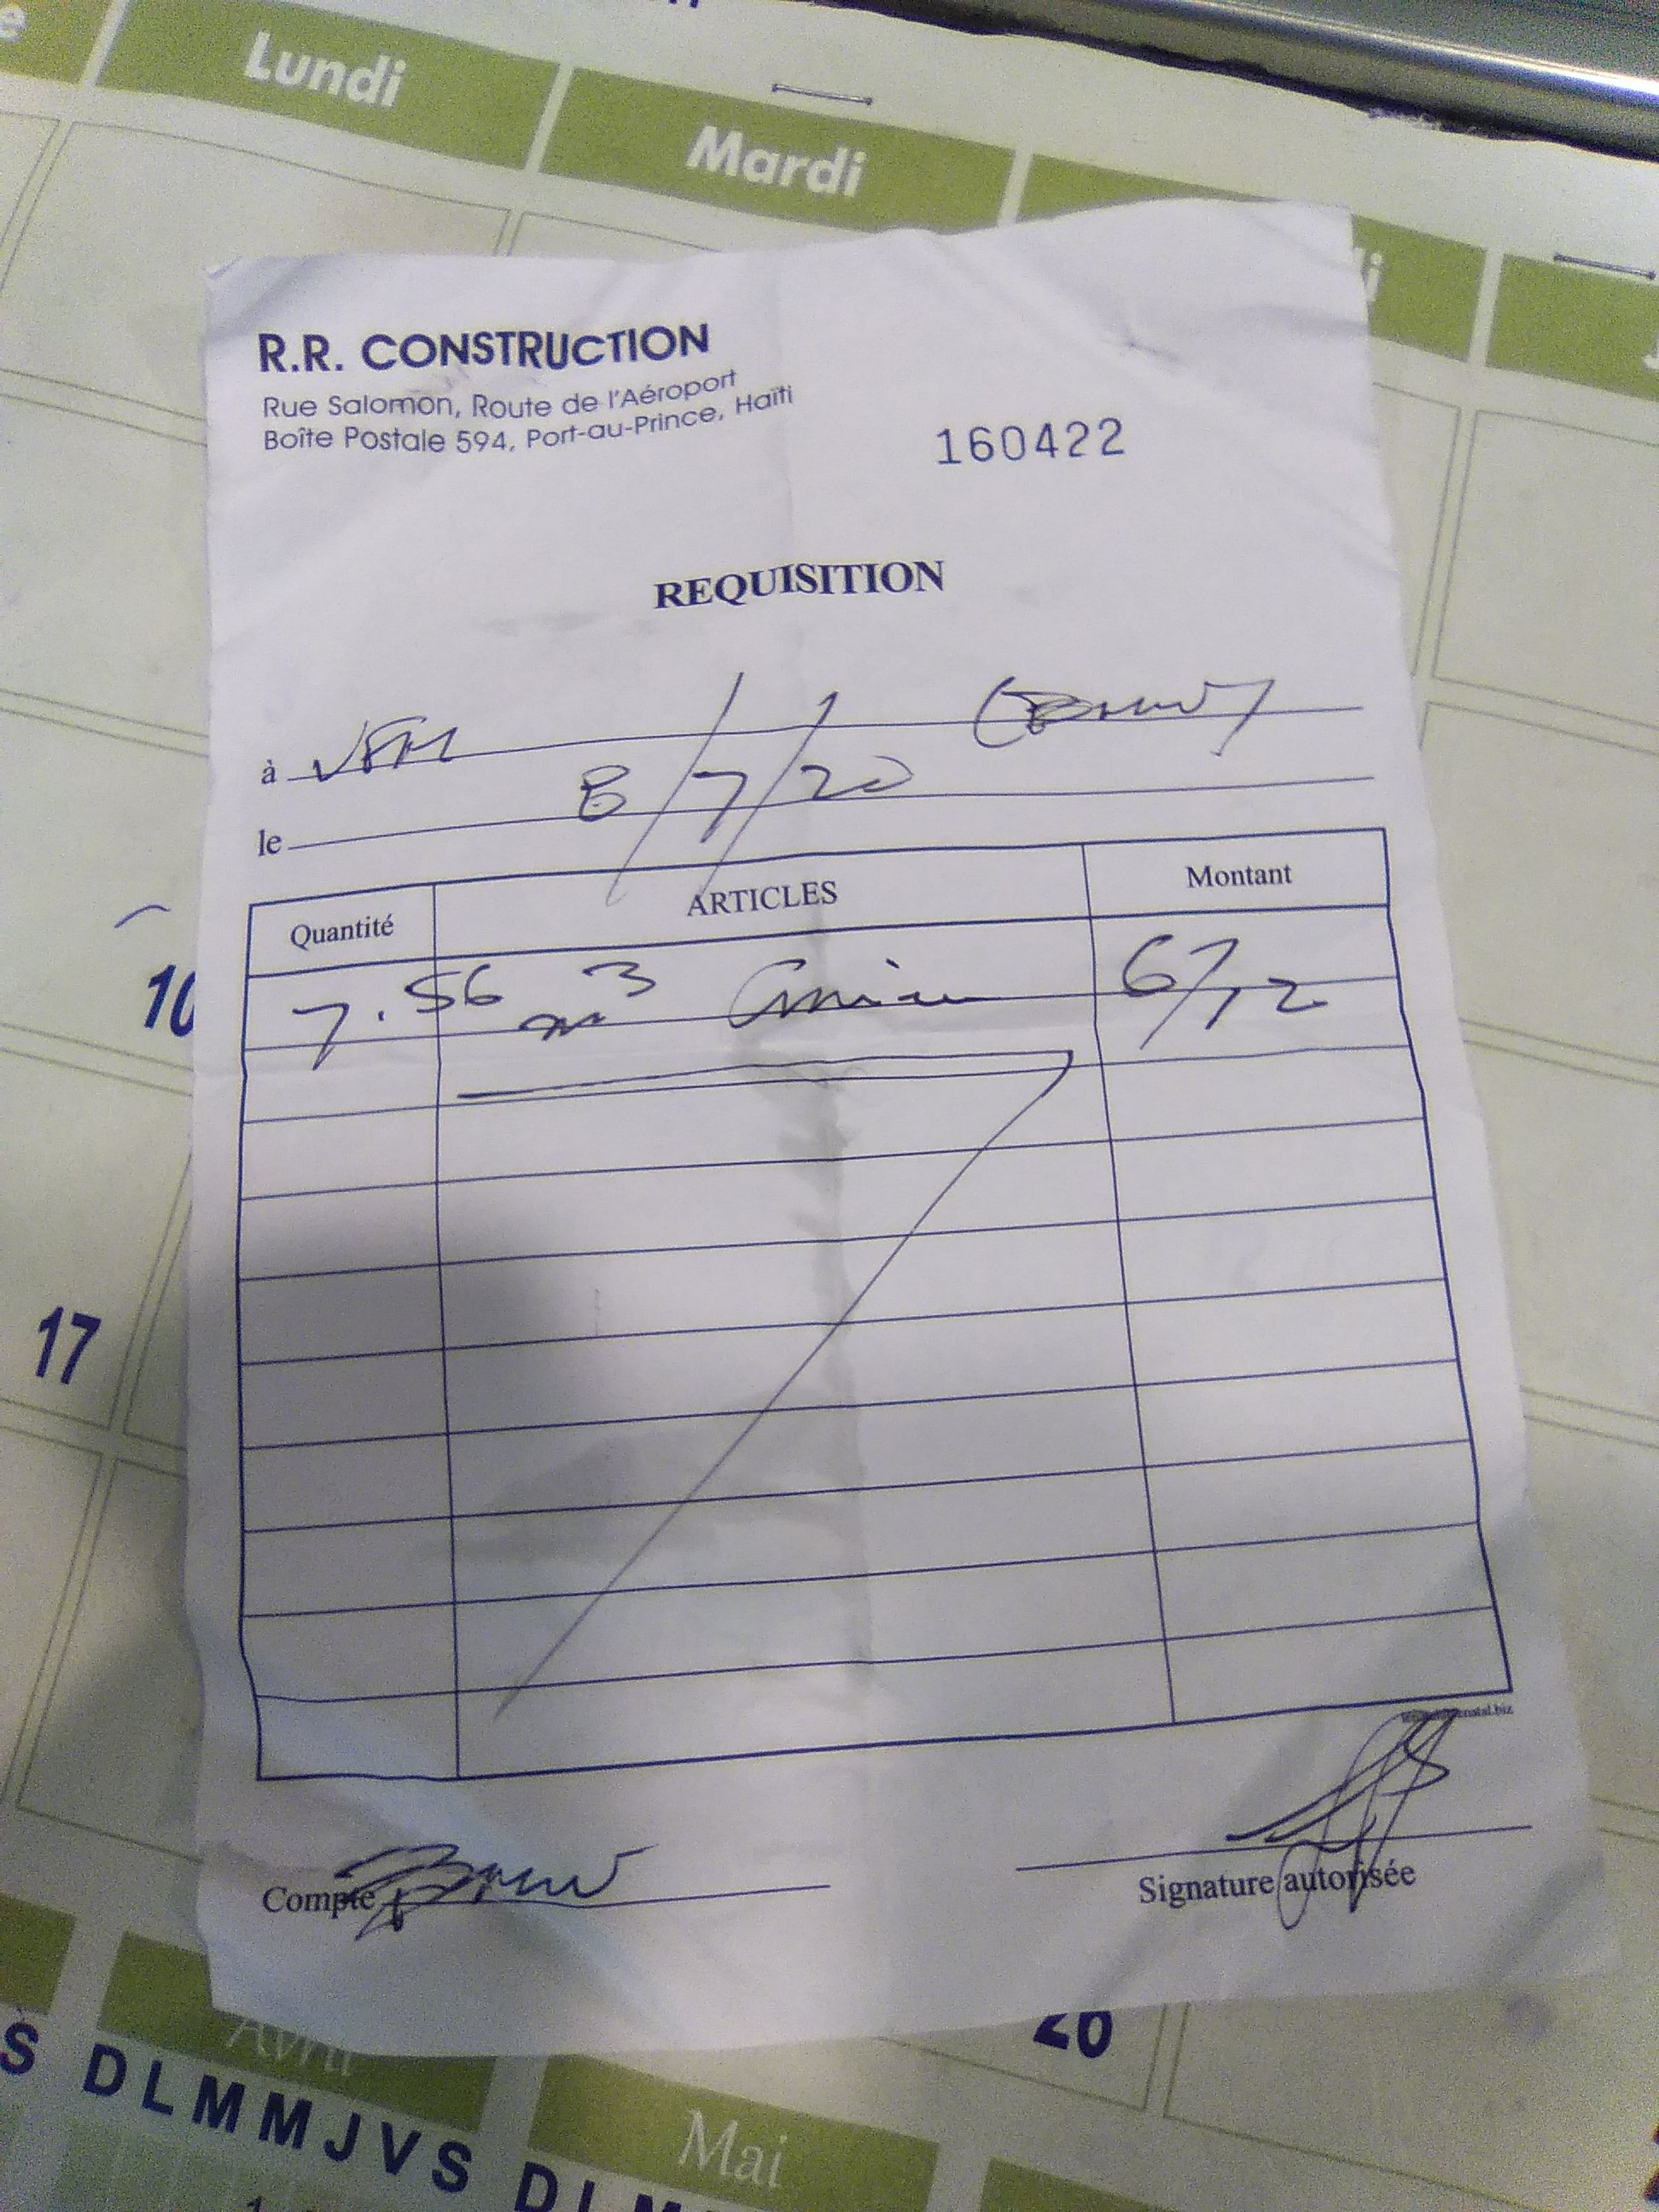 Lundi
Mardi
R.R. CONSTRUCTION
Rue Salomon, Route de l'Aéroport
Boîte Postale 594, Port-au-Prince, Haïti
160422
REQUISITION
à
le 8/7/20
Quantité ARTICLES Montant
7.56 m3 6/12
Compte
Signature autorisée
10
17
26
Avril
S D L M M J V S D L M
Mai